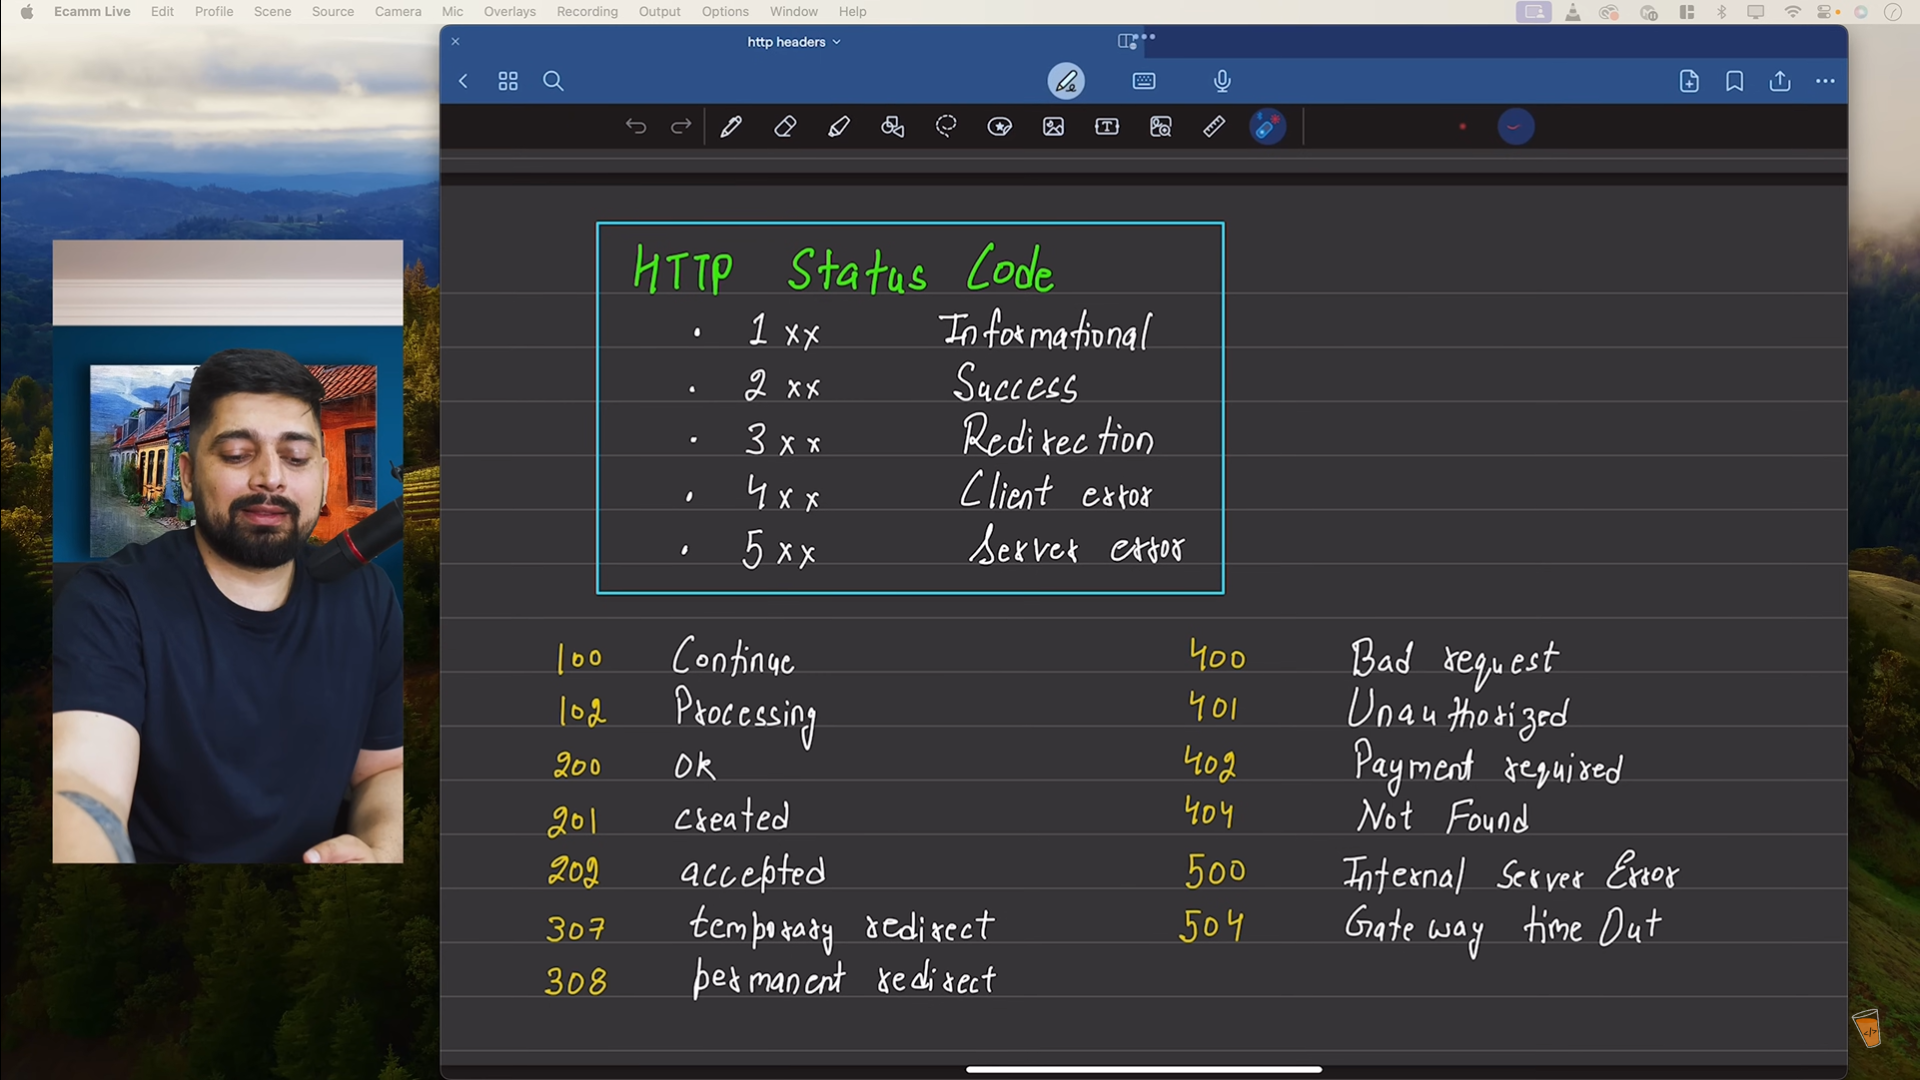 Ecamm Live Edit Profile Scene Source Camera Mic Overlays Recording Output Options Window Help
http headers
HTTP Status Code
· 1xx Informational
· 2xx Success
· 3xx Redirection
· 4xx Client error
· 5xx Server error
100 Continue
102 Processing
200 ok
201 created
202 accepted
307 temporary redirect
308 permanent redirect
400 Bad request
401 Unauthorized
402 Payment required
404 Not Found
500 Internal Server Error
504 Gateway time Out